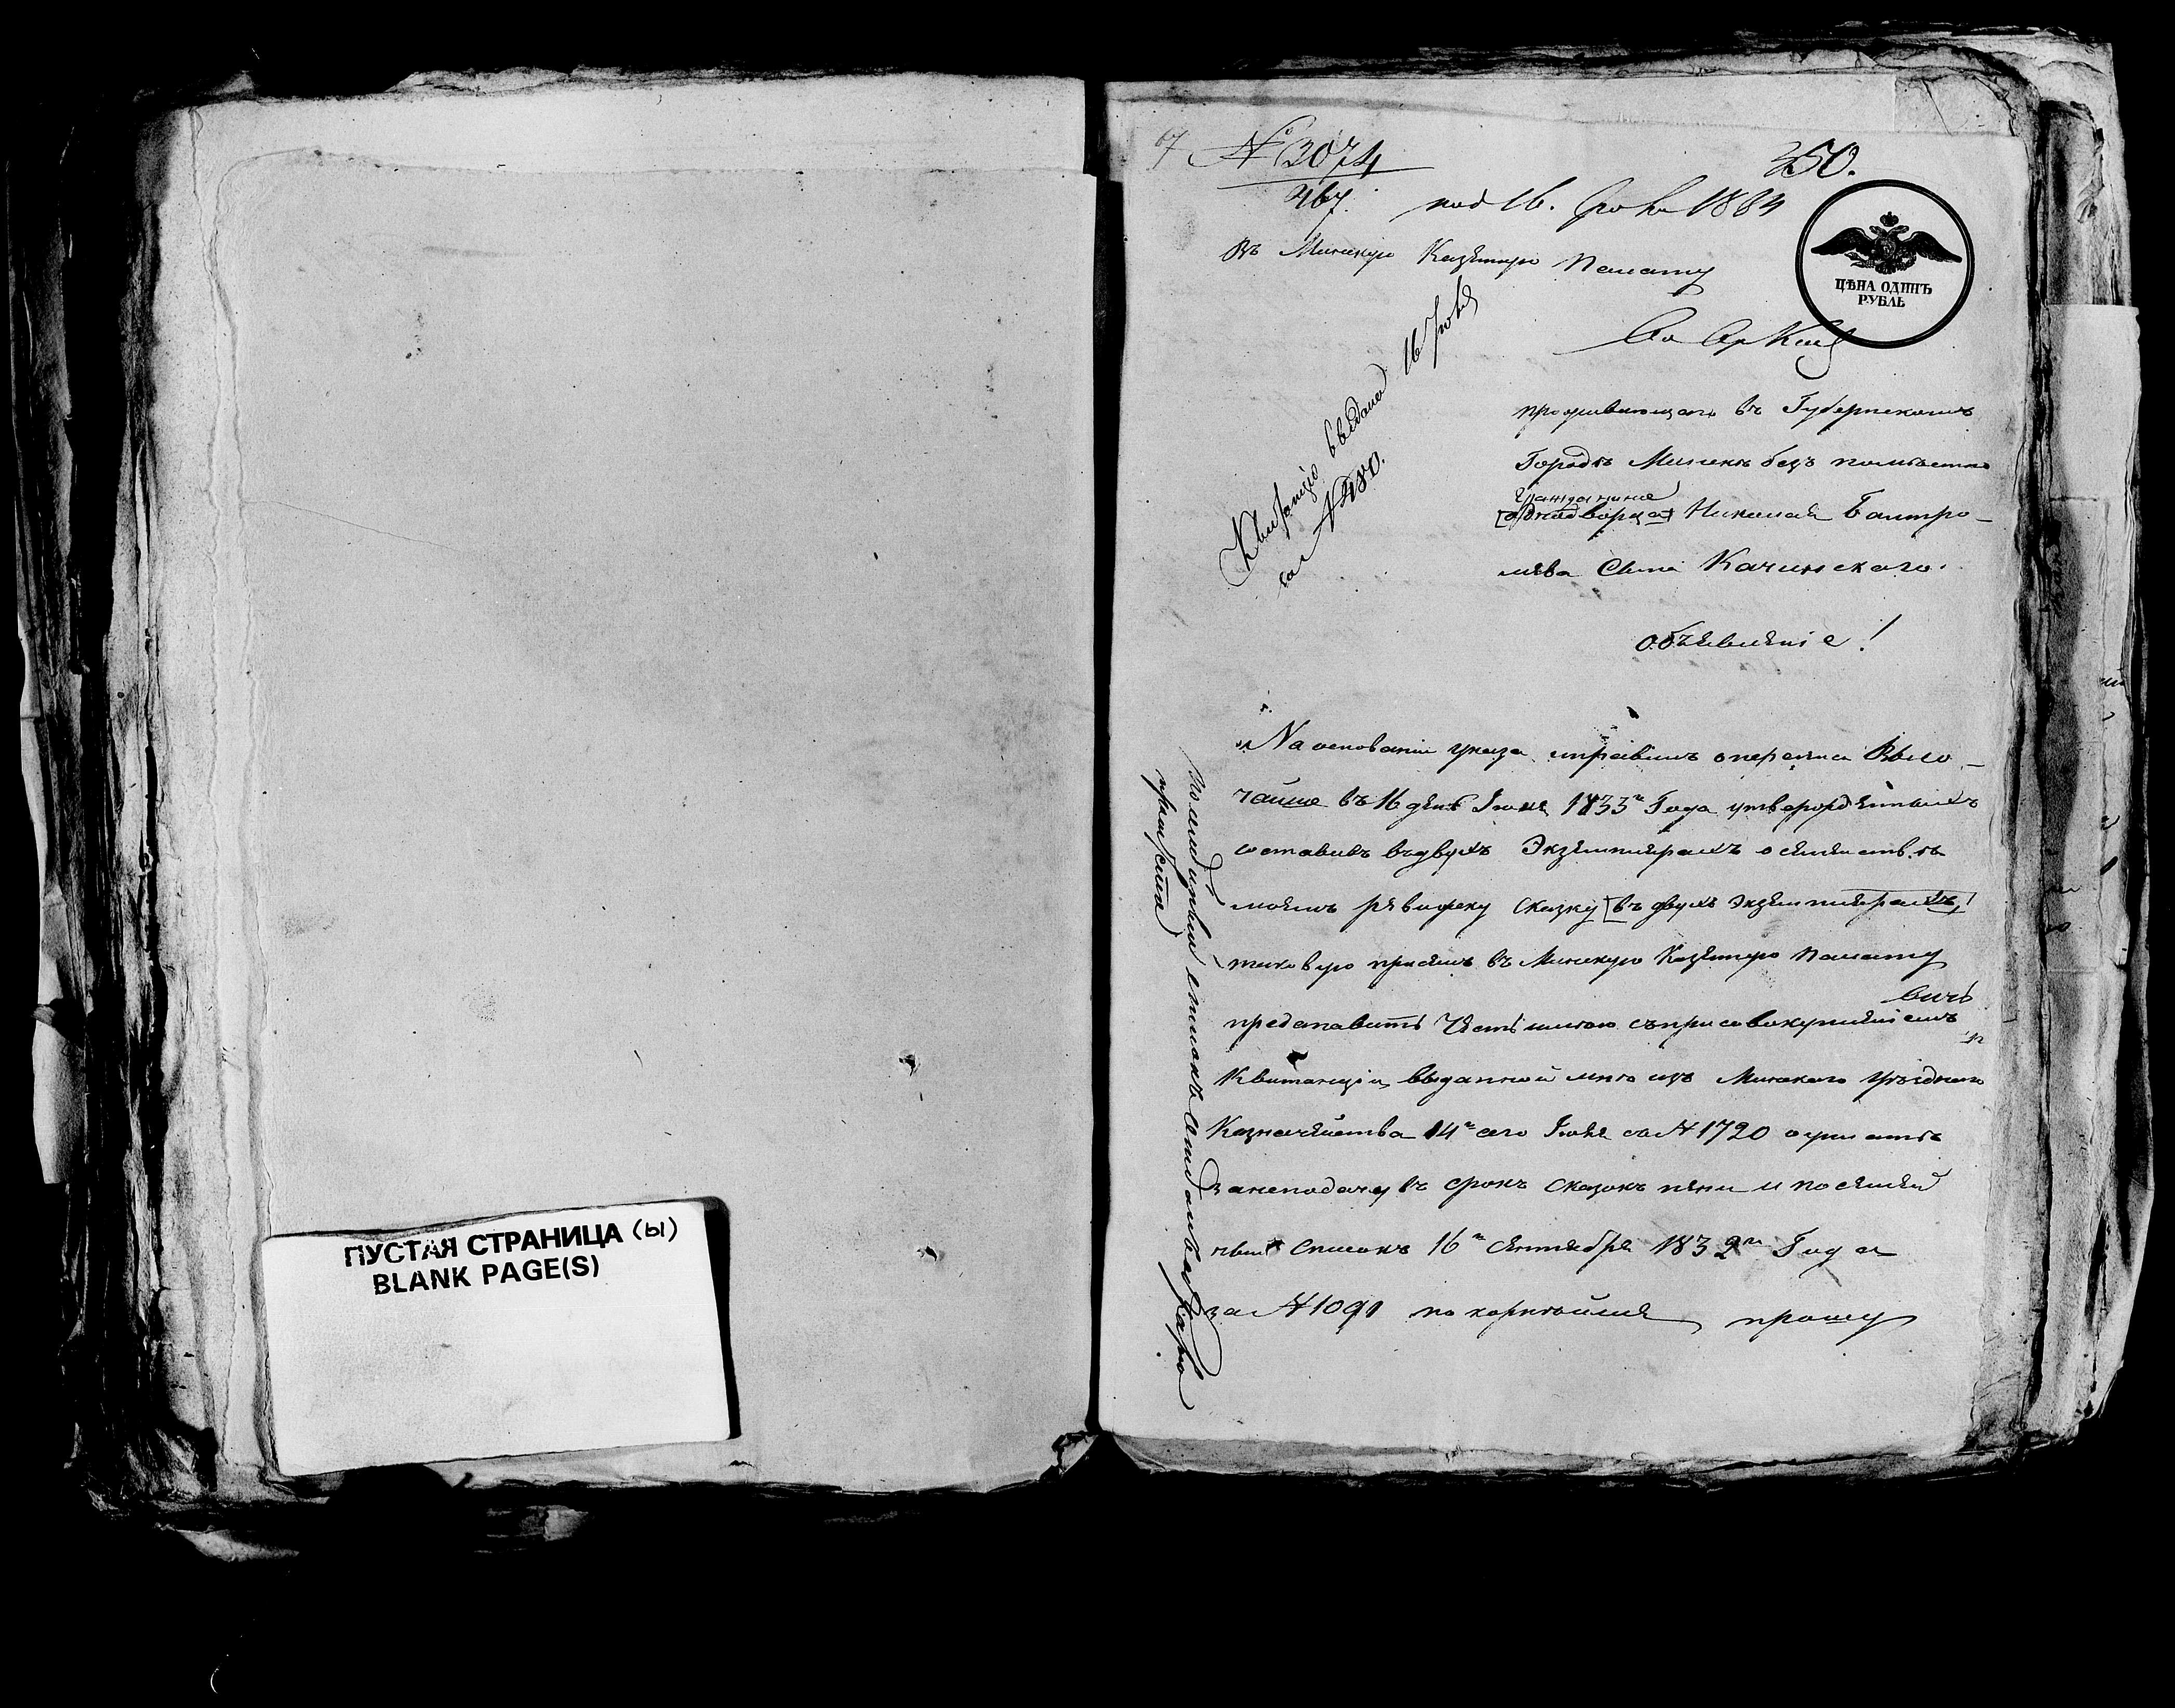 ПУСТАЯ СТРАНИЦА (Ы)
BLANK PAGE(S)
7 № 3074
467.
350.
под 16. Июля 1834
ЦѢНА ОДИНЪ
РУБЛЬ
Въ Минскую Казенную Палату
Квитанція выдана 16 Июля
за № 480.
проживающаго въ Губернскомъ
Городѣ Минскѣ безъ помѣстно
гражданина
[однодворца] Николая Балтро-
мѣева Сына Качинскаго.
Объявленіе!
На основаніи указа и правилъ о переписи Высо-
чайше въ 16 день Іюня 1833го Года утвержденныхъ
составивъ въ двухъ Экземплярахъ о семействѣ
моемъ ревизску Сказку [въ двухъ экземплярахъ,]
таковую при семъ въ Минскую Казенную Палату
представить Честь имѣю съ присовокупленіемъ
Квитанціи выданной мнѣ изъ Минскаго Уѣзднаго
Казначейства 14го сего Іюля за № 1720 о уплатѣ
за неподачу въ срокъ сказокъ пени и посемей
ный Списокъ 16го Сентября 1832го Года
за № 1091 покорнѣйше прошу